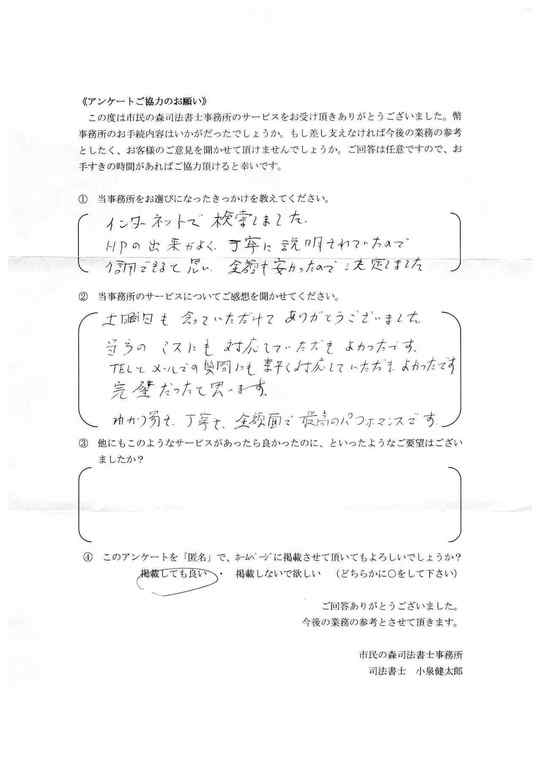 《アンケートご協力のお願い》
この度は市民の森司法書士事務所のサービスをお受け頂きありがとうございました。幣
事務所のお手続内容はいかがだったでしょうか。もし差し支えなければ今後の業務の参考
としたく、お客様のご意見を聞かせて頂けませんでしょうか。ご回答は任意ですので、お
手すきの時間があればご協力頂けると幸いです。
① 当事務所をお選びになったきっかけを教えてください。
インターネットで検索しました。
HPの出来がよく、丁寧に説明されていたので
信用できると思い、金額も安かったので決定しました
② 当事務所のサービスについてご感想を聞かせてください。
土曜日も会っていただけて ありがとうございました。
当方のミスにも対応していただきよかったです。
TELとメールでの質問にも素早く対応していただきよかったです
完璧だったと思います。
わかり易く、丁寧で、金額面で最高のパフォマンスです。
③ 他にもこのようなサービスがあったら良かったのに、といったようなご要望はござい
ましたか?
④ このアンケートを「匿名」で、ホームページに掲載させて頂いてもよろしいでしょうか?
掲載しても良い ・ 掲載しないで欲しい (どちらかに○をして下さい)
ご回答ありがとうございました。
今後の業務の参考とさせて頂きます。
市民の森司法書士事務所
司法書士 小泉健太郎